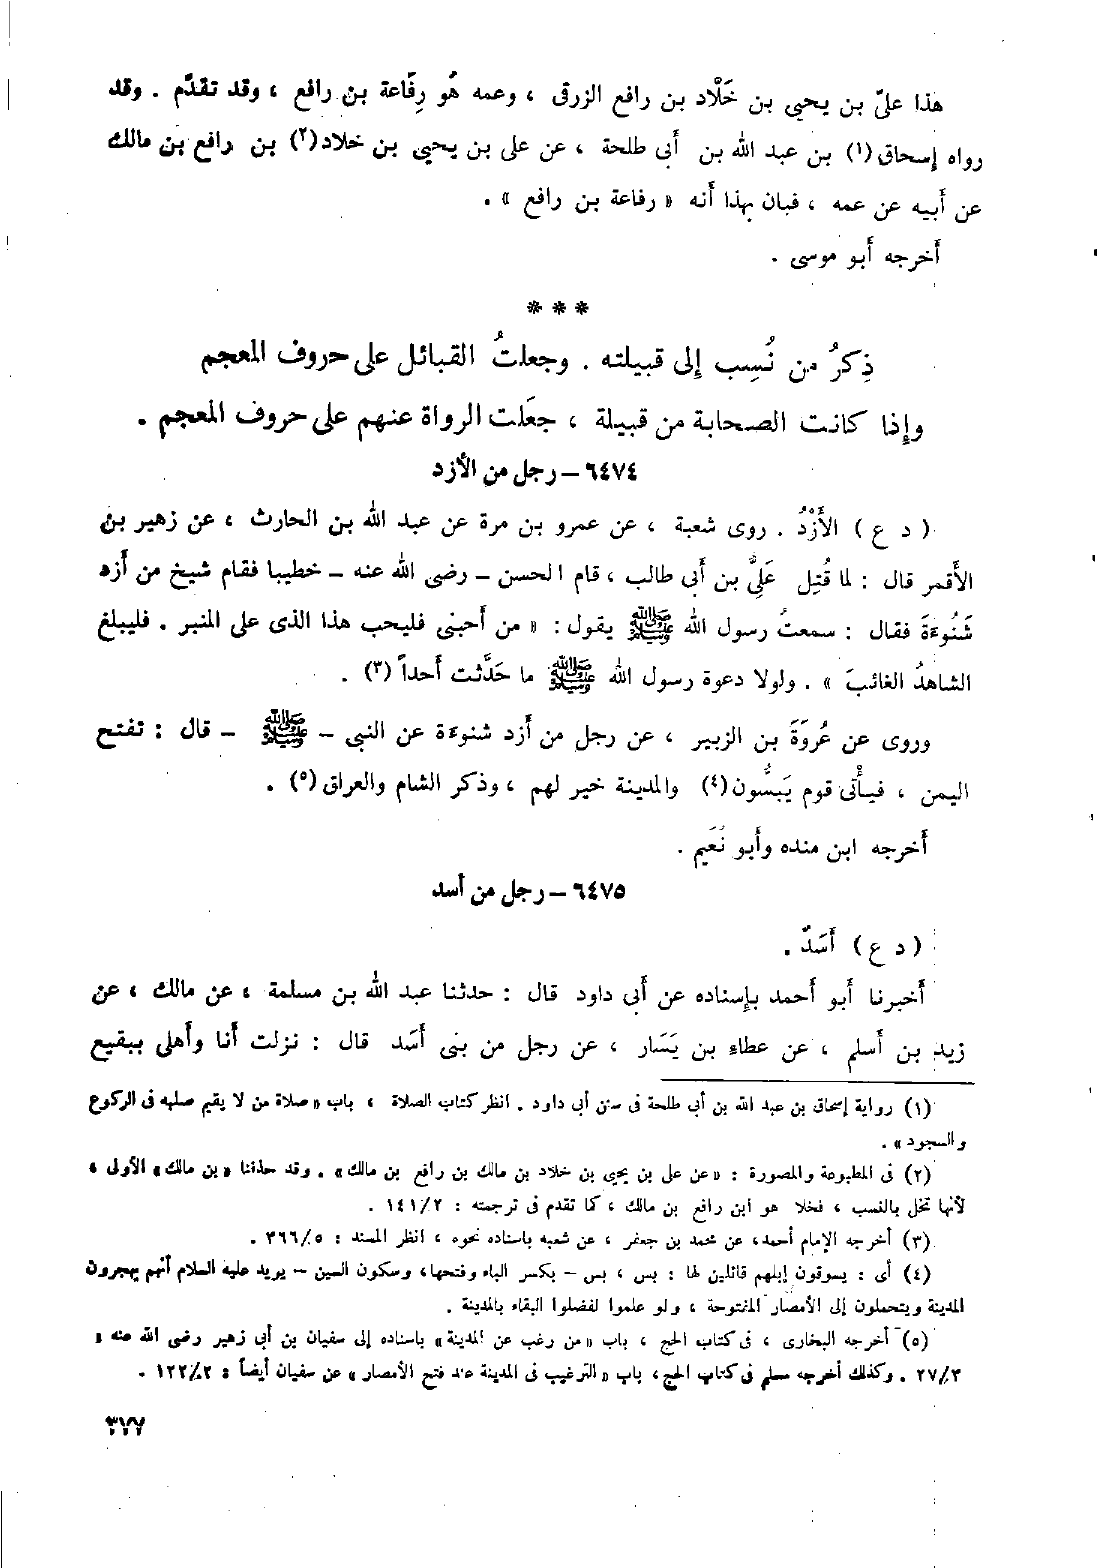 هذا علىّ بن يحيى بن خَلَّاد بن رافع الزرقى ، وعمه هُو رِفَاعة بن رافع ، وقد تقدَّم . وقد
رواه إسحاق (١) بن عبد الله بن أبى طلحة ، عن على بن يحيى بن خلاد (٢) بن رافع بن مالك
عن أبيه عن عمه ، فبان بهذا أنه « رفاعة بن رافع » .
أخرجه أبو موسى .
* * *
ذِكرُ من نُسِب إلى قبيلته . وجعلتُ القبائل على حروف المعجم
وإذا كانت الصحابة من قبيلة ، جعَلت الرواة عنهم على حروف المعجم .
٦٤٧٤ – رجل من الأزد
( د ع ) الأَزْدُ . روى شعبة ، عن عمرو بن مرة عن عبد الله بن الحارث ، عن زهير بن
الأقمر قال : لما قُتِل عَلىُّ بن أبى طالب ، قام الحسن – رضى الله عنه – خطيبا فقام شيخ من أزد
شَنُوءَةَ فقال : سمعتُ رسول الله ﷺ يقول : « من أحبنى فليحب هذا الذى على المنبر . فليبلغ
الشاهدُ الغائبَ » . ولولا دعوة رسول الله ﷺ ما حَدَّثت أحداً (٣) .
وروى عن عُروَةَ بن الزبير ، عن رجل من أزد شنوءة عن النبى – ﷺ – قال : تفتح
اليمن ، فيأْتى قوم يَبُسُّون (٤) والمدينة خير لهم ، وذكر الشام والعراق (٥) .
أخرجه ابن منده وأبو نُعَيم .
٦٤٧٥ – رجل من أسد
( د ع ) أَسَدٌ .
أخبرنا أبو أحمد بإسناده عن أبى داود قال : حدثنا عبد الله بن مسلمة ، عن مالك ، عن
زيد بن أسلم ، عن عطاء بن يَسَار ، عن رجل من بنى أَسَد قال : نزلت أنا وأهلى ببقيع
(١) رواية إسحاق بن عبد الله بن أبى طلحة فى سنن أبى داود . انظر كتاب الصلاة ، باب « صلاة من لا يقيم صلبه فى الركوع
والسجود » .
(٢) فى المطبوعة والمصورة : « عن على بن يحيى بن خلاد بن مالك بن رافع بن مالك » . وقد حذفنا « بن مالك » الأولى ،
لأنها تخل بالنسب ، فخلا هو ابن رافع بن مالك ، كما تقدم فى ترجمته : ١٤١/٢ .
(٣) أخرجه الإمام أحمد، عن محمد بن جعفر ، عن شعبة باسناده نحوه ، انظر المسند : ٣٦٦/٥ .
(٤) أى : يسوقون إبلهم قائلين لها : بس ، بس – بكسر الباء وفتحها، وسكون السين – يريد عليه السلام أنهم يهجرون
المدينة ويتحملون إلى الأمصار المفتوحة ، ولو علموا لفضلوا البقاء بالمدينة .
(٥) أخرجه البخارى ، فى كتاب الحج ، باب « من رغب عن المدينة » باسناده إلى سفيان بن أبى زهير رضى الله عنه ،
٢٧/٣ . وكذلك أخرجه مسلم فى كتاب الحج ، باب « الترغيب فى المدينة عند فتح الأمصار » عن سفيان أيضاً : ١٢٢/٢ .
٣٧٧